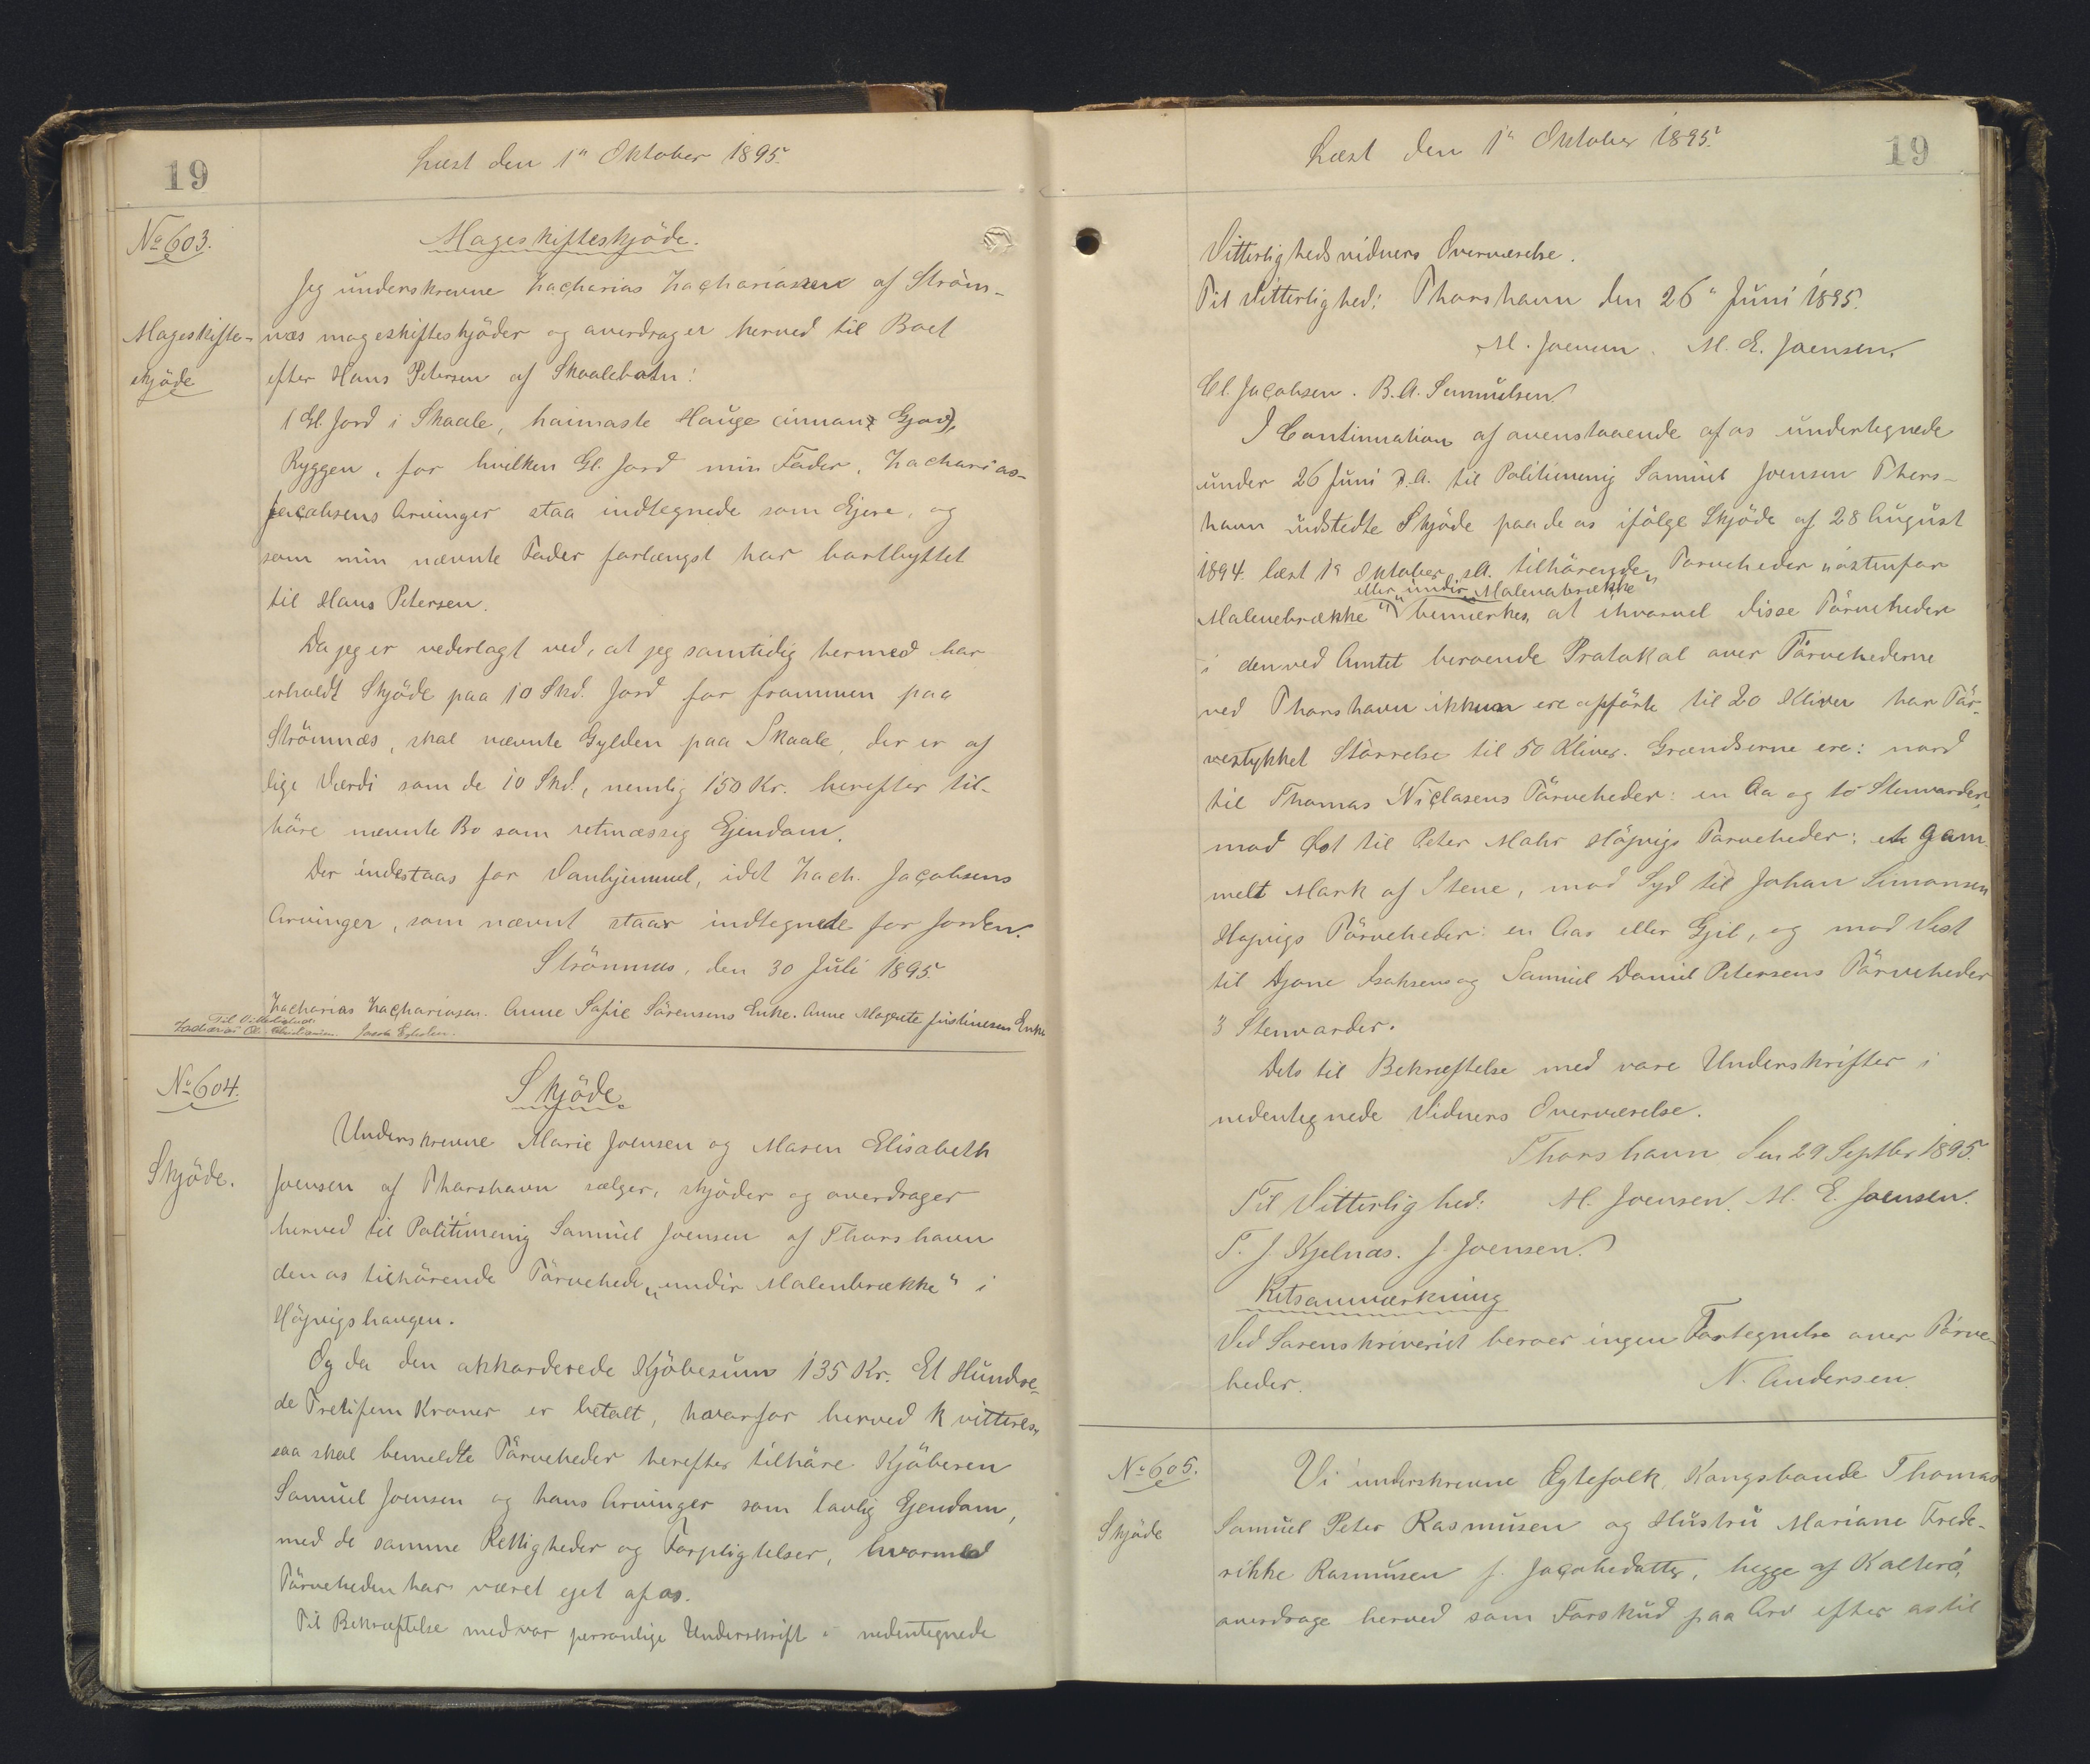 19
Læst den 1" Oktober 1895.
No 603.
Mageskifteskjöde.
Jeg underskrevne Zacharias Zachariasen af Ström-
Mageskifte-
skjöde
næs mageskifteskjöder og overdrager herved til Boet
efter Hans Petersen af Skaalebotn:
1 Gl. Jord i Skaale, haimaste Hauge innan Gjov,
Ryggen, for hvilken Gl. Jord min Fader, Zacharias
Jacobsens Arvinger staa indtegnede som Ejere, og
som min nævnte Fader forlængst har bortbyttet
til Hans Petersen.
Da jeg er vederlagt ved, at jeg samtidig hermed har
erholdt Skjöde paa 10 Skd. Jord for frommen paa
Strömnæs, skal nævnte Gylden paa Skaale, der er af
lige Værdi som de 10 Skd., nemlig 150 Kr. herefter til-
höre nævnte Bo som retmæssig Ejendom.
Der indestaas for Vanhjemmel, idet Zach. Jacobsens
Arvinger, som nævnt staar indtegnede for Jorden.
Strömnæs, den 30 Juli 1895.
Zacharias Zachariasen. Anne Sofie Sörensens Enke. Anne Magrete Justinesen Enke
Til Vitterlighed:
No 604.
Skjöde
Underskrevne Marie Joensen og Maren Elisabeth
Skjöde.
Joensen af Thorshavn sælger, skjöder og overdrager
herved til Politimenig Samuel Joensen af Thorshavn
den os tilhörende Törvehede "undir Malenbrække" i
Höjvigshaugen.
Og da den akkorderede Kjöbesum 135 Kr. Et Hundre-
de Tretifem Kroner er betalt, hvorfor herved kvitteres,
saa skal bemeldte Törveheder herefter tilhöre Kjöberen
Samuel Joensen og hans Arvinger som lovlig Ejendom,
med de samme Rettigheder og Forpligtelser, hvormed
Törveheden har været ejet af os.
Til Bekræftelse med vor personlige Underskrift i nedentegnede
Læst den 1" Oktober 1895.
19
Vitterlighedsvidners Overværelse.
Til Vitterlighed: Thorshavn den 26" Juni 1895.
M. Joensen. M. E. Joensen.
Cl. Jacobsen. B. A. Semmelsen.
I Continuation af ovenstaaende af os undertegnede
under 26 Juni d.A. til Politimenig Samuel Joensen Thors-
havn udstedte Skjöde paa de os ifölge Skjöde af 28 August
1894. læst 1" Oktober s.A. tilhörende Törveheder "östenfor
eller "undir Malenabrække"
Malenebrække" bemærkes, at ihvorvel disse Törveheder
i den ved Amtet beroende Protokol over Törvehederne
ved Thorshavn ikkun ere opförte til 20 Kliver har Tör-
vestykket Störrelse til 50 Kliver. Grændserne ere: nord
til Thomas Niclasens Törveheder: en Aa og to Stenvarder,
mod Öst til Peter Mohr Höjvigs Törveheder: et gam
melt Mark af Stene, mod Syd til Johan Simonsen
Höjvigs Törveheder: en Aar eller Gjil, og mod Vest
til Djone Isaksens og Samuel Daniel Petersens Törveheder
3 Stenvarder.
Dets til Bekræftelse med vore Underskrifter i
nedentegnede Vidners Overværelse.
Thorshavn den 29 Septbr 1895.
Til Vitterlighed: M. Joensen. M. E. Joensen.
T. J. Kjelnæs. J. Joensen.
Retsanmærkning
Ved Sorenskriveriet beroer ingen Fortegnelse over Törve-
heder. N. Andersen.
No 605.
Vi underskrevne Ægtefolk, Kongsbonde Thomas
Skjöde
Samuel Peter Rasmusen og Hustru Mariane Frede-
rikke Rasmusen f. Jacobsdatter, begge af Kolterö,
overdrage herved som Forskud paa Arv efter os til